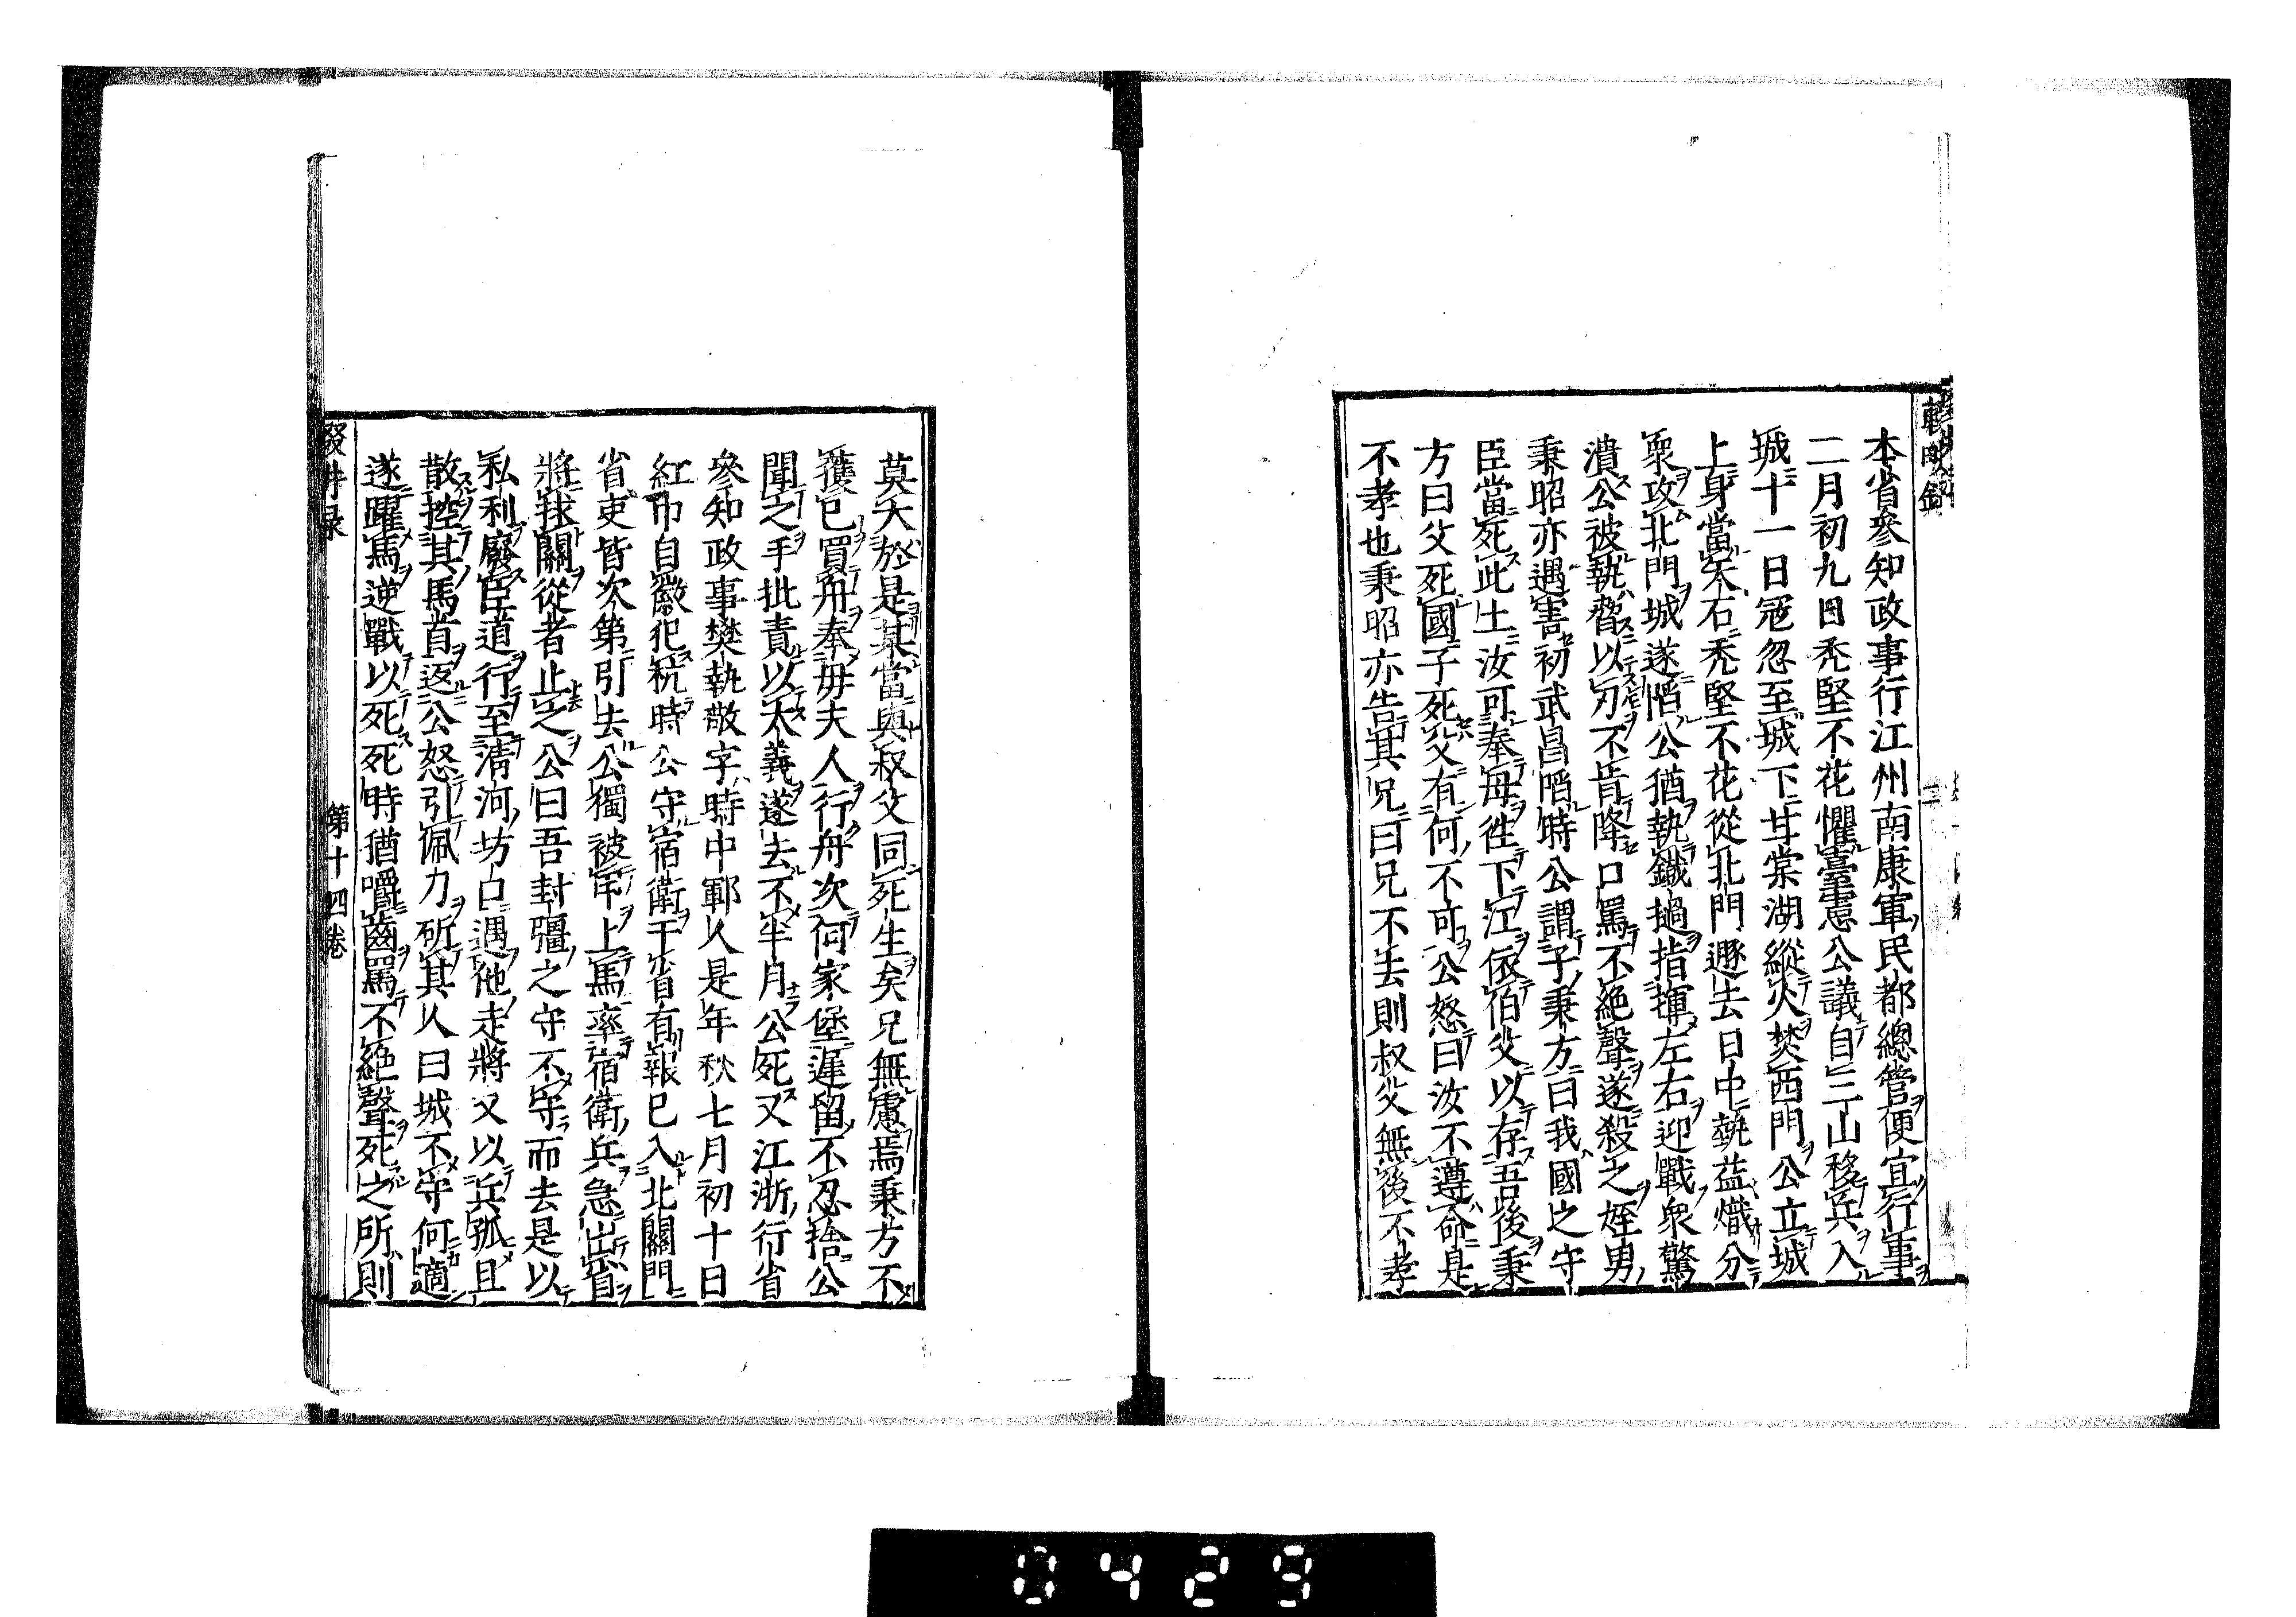 輟耕錄
本省參知政事行江州南康軍民都總管便宜行事
二月初九日禿堅不花懼臺憲公議自三山移兵入
城十一日寇忽至城下甘棠湖縱火焚西門公立城
上身當矢石禿堅不花從北門遯去日中執益熾分
衆攻北門城遂䧟公猶執鐵撾指揮左右迎戰衆驚
潰公被執脅以刃不肯降口罵不絶聲遂殺之姪男
秉昭亦遇害初武昌䧟時公謂子秉方曰我國之守
臣當死此土汝可奉母徃下江依伯父以存吾後秉
方曰父死國子死父有何不可公怒曰汝不遵命是
不孝也秉昭亦告其兄曰兄不去則叔父無後不孝
莫大於是某當與叔父同死生矣兄無慮焉秉方不
獲已買舟奉母夫人行舟次何家堡遲留不忍捨公
聞之手批責以大義遂去不半月公死又江浙行省
參知政事樊執敬字時中鄆人是年秋七月初十日
紅巾自徽犯杭時公守宿衛于省有報已入北關門
省吏皆次第引去公獨被甲上馬率宿衛兵急出省
將救關從者止之公曰吾封疆之守不守而去是以
私利廢臣道行至清河坊口遇他走將又以兵孤且
散控其馬首返公怒引佩刀斫其人曰城不守何適
遂躍馬逆戰以死死時猶嚼齒罵不絶聲死之所則
輟耕录 第十四卷
0429